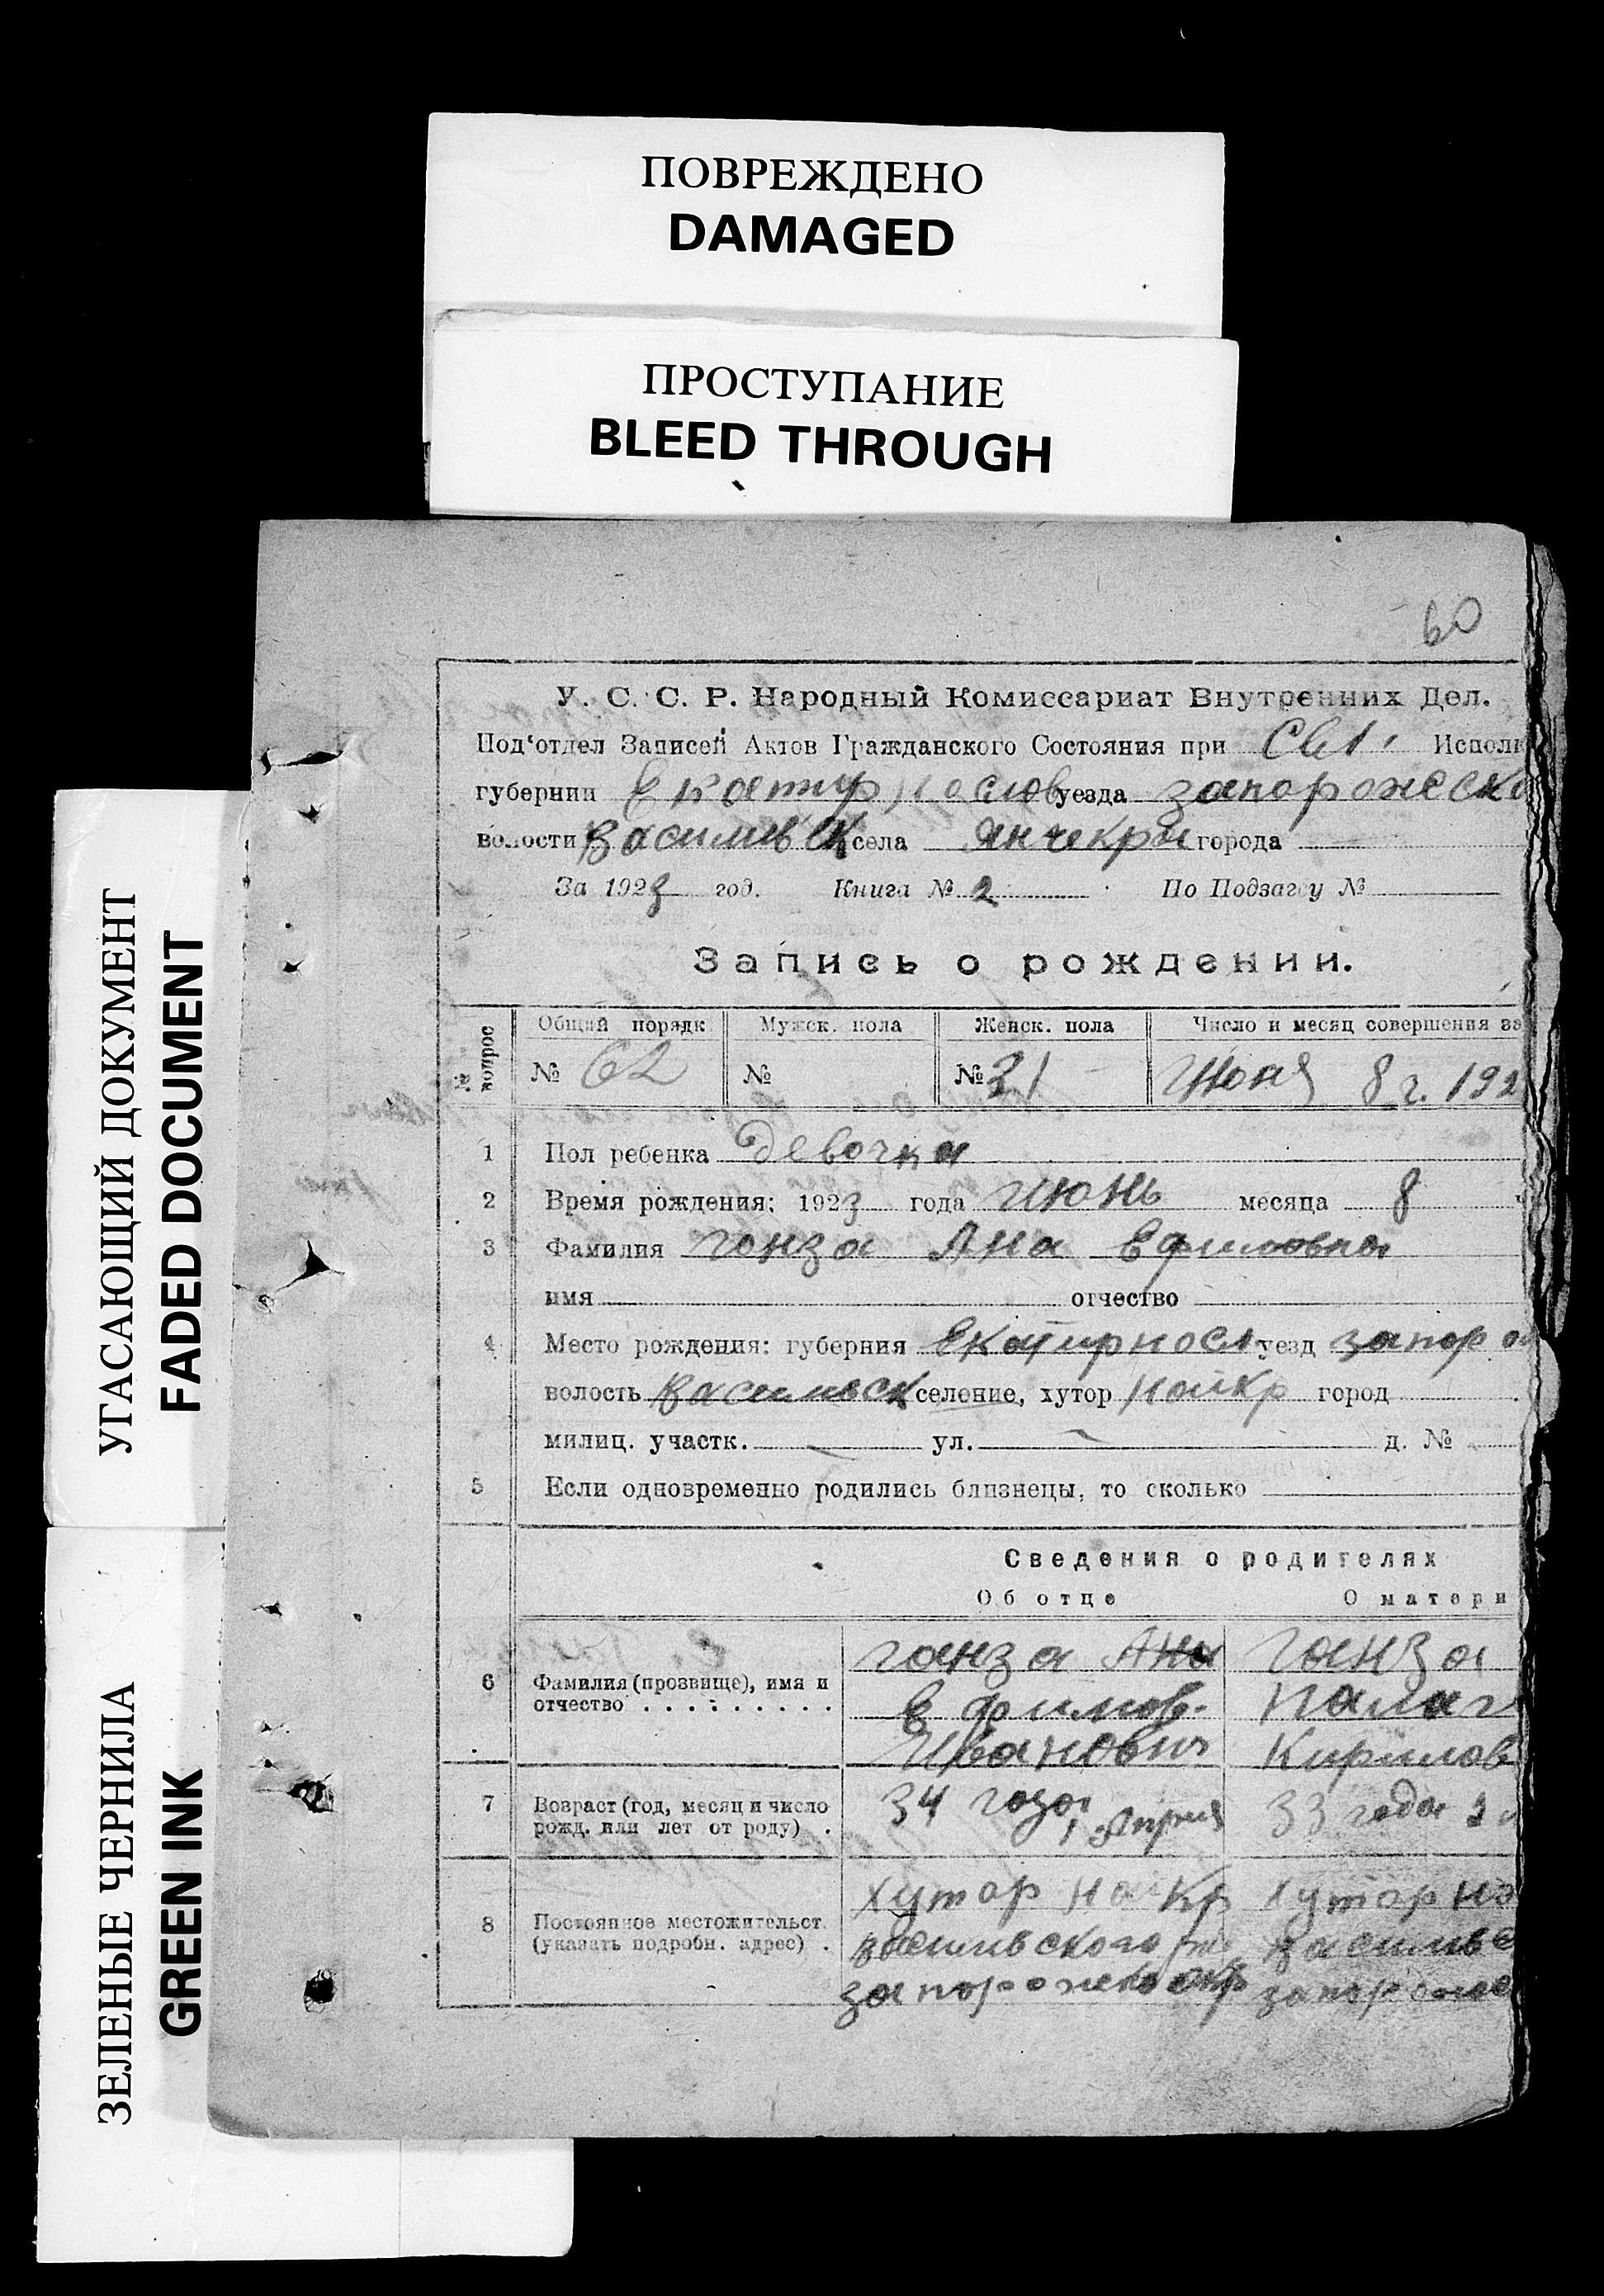 ПОВРЕЖДЕНО
DAMAGED
ПРОСТУПАНИЕ
BLEED THROUGH
УГАСАЮЩИЙ ДОКУМЕНТ
FADED DOCUMENT
ЗЕЛЕНЫЕ ЧЕРНИЛА
GREEN INK
60
У. С. С. Р. Народный Комиссариат Внутренних Дел.
Под'отдел Записей Актов Гражданского Состояния при Исполк
губернии уезда запорожско
волости Василивск села Янчекры города
За 1923 год. Книга № 2 По Подзагсу №
Запись о рождении.
№ вопрос
Общий порядк Мужск. пола Женск. пола Число и месяц совершения за
№ 62 № № 31 Июня 8 г. 192
1 Пол ребенка девочка
2 Время рождения: 1923 года июнь месяца 8
3 Фамилия Гонза Ана Ефимовна
имя отчество
4 Место рождения: губерния Екатирносл уезд запор
волость Василивск селение, хутор город
милиц. участк. ул. д. №
5 Если одновременно родились близнецы, то сколько
Сведения о родителях
Об отце О матери
6 Фамилия (прозвище), имя и отчество
Гонза Ана
Ефимов.
Иванович
Гонза
Палаг
Кирилов
7 Возраст (год, месяц и число рожд. или лет от роду) .
34 года
33 года 2
8 Постоянное местожительст. (указать подробн. адрес) .
хутор
василивского
хутор
василивс
запорож